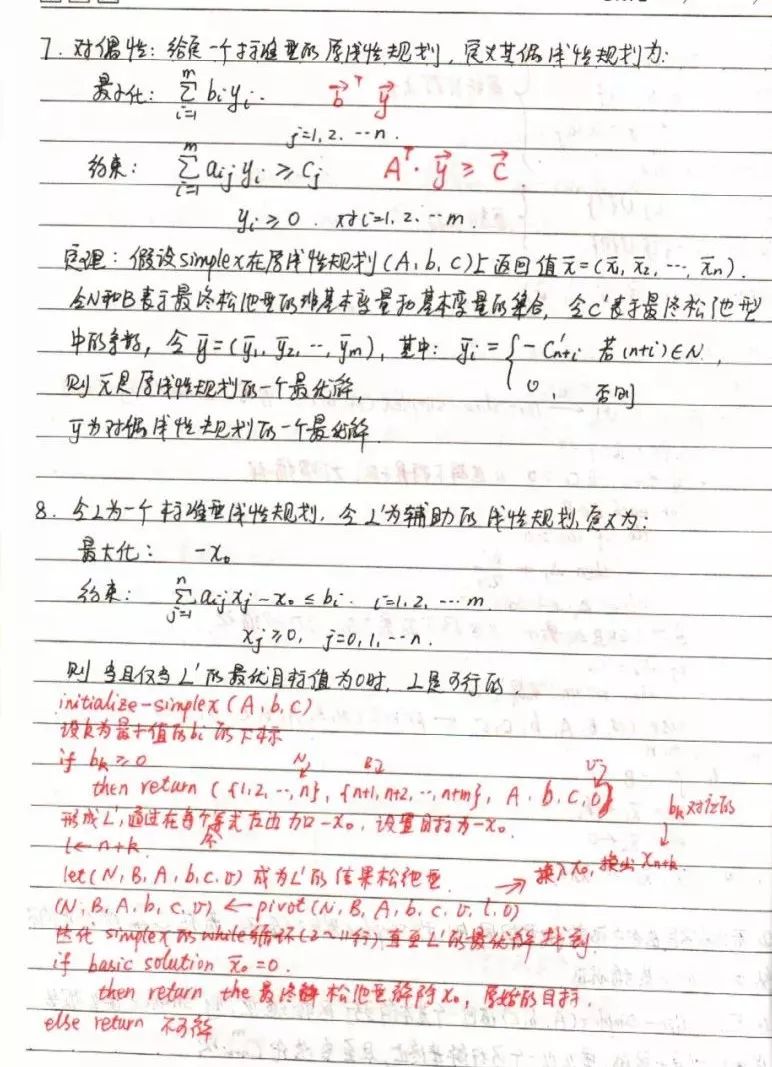 7. 对偶性: 给定一个标准型的原线性规划, 定义其偶线性规划为:
最小化: ∑_{i=1}^{m} b_i y_i. b⃗^T y⃗
j=1,2,…n.
约束: ∑_{i=1}^{m} a_{ij} y_i ≥ c_j A^T · y⃗ ≥ c⃗
y_i ≥ 0. 对i=1,2,…m.
定理: 假设simplex在原线性规划(A,b,c)上返回值x̄=(x̄₁,x̄₂,…,x̄ₙ).
令N和B表示最终松弛型的非基本变量和基本变量的集合, 令c'表示最终松弛型
中的参数, 令ȳ=(ȳ₁,ȳ₂,…,ȳₘ), 其中: ȳ_i = { -c'_{n+i} 若(n+i)∈N,
0, 否则
则x̄是原线性规划的一个最优解,
ȳ为对偶线性规划的一个最优解.
8. 令L为一个标准型线性规划, 令L'为辅助的线性规划, 定义为:
最大化: -x₀
约束: ∑_{j=1}^{n} a_{ij} x_j - x₀ ≤ b_i. i=1,2,…m.
x_j ≥ 0, j=0,1,…n.
则当且仅当L'的最优目标值为0时, L是可行的.
initialize-simplex(A,b,c)
设k为最小值的b_i的下标
if b_k ≥ 0 N B v
then return ({1,2,…,n}, {n+1,n+2,…,n+m}, A,b,c,0) b_k对应的
形成L', 通过在每个等式左边加-x₀, 设置目标为-x₀.
l ← n+k. 换入x₀, 换出x_{n+k}
let(N,B,A,b,c,v) 成为L'的结果松弛型
(N,B,A,b,c,v) ← pivot(N,B,A,b,c,v,l,0)
迭代simplex的while循环(2~11行)直至L'的最优解找到
if basic solution x̄₀=0.
then return the 最终 松弛型 解除x₀, 原始的目标.
else return 不可解